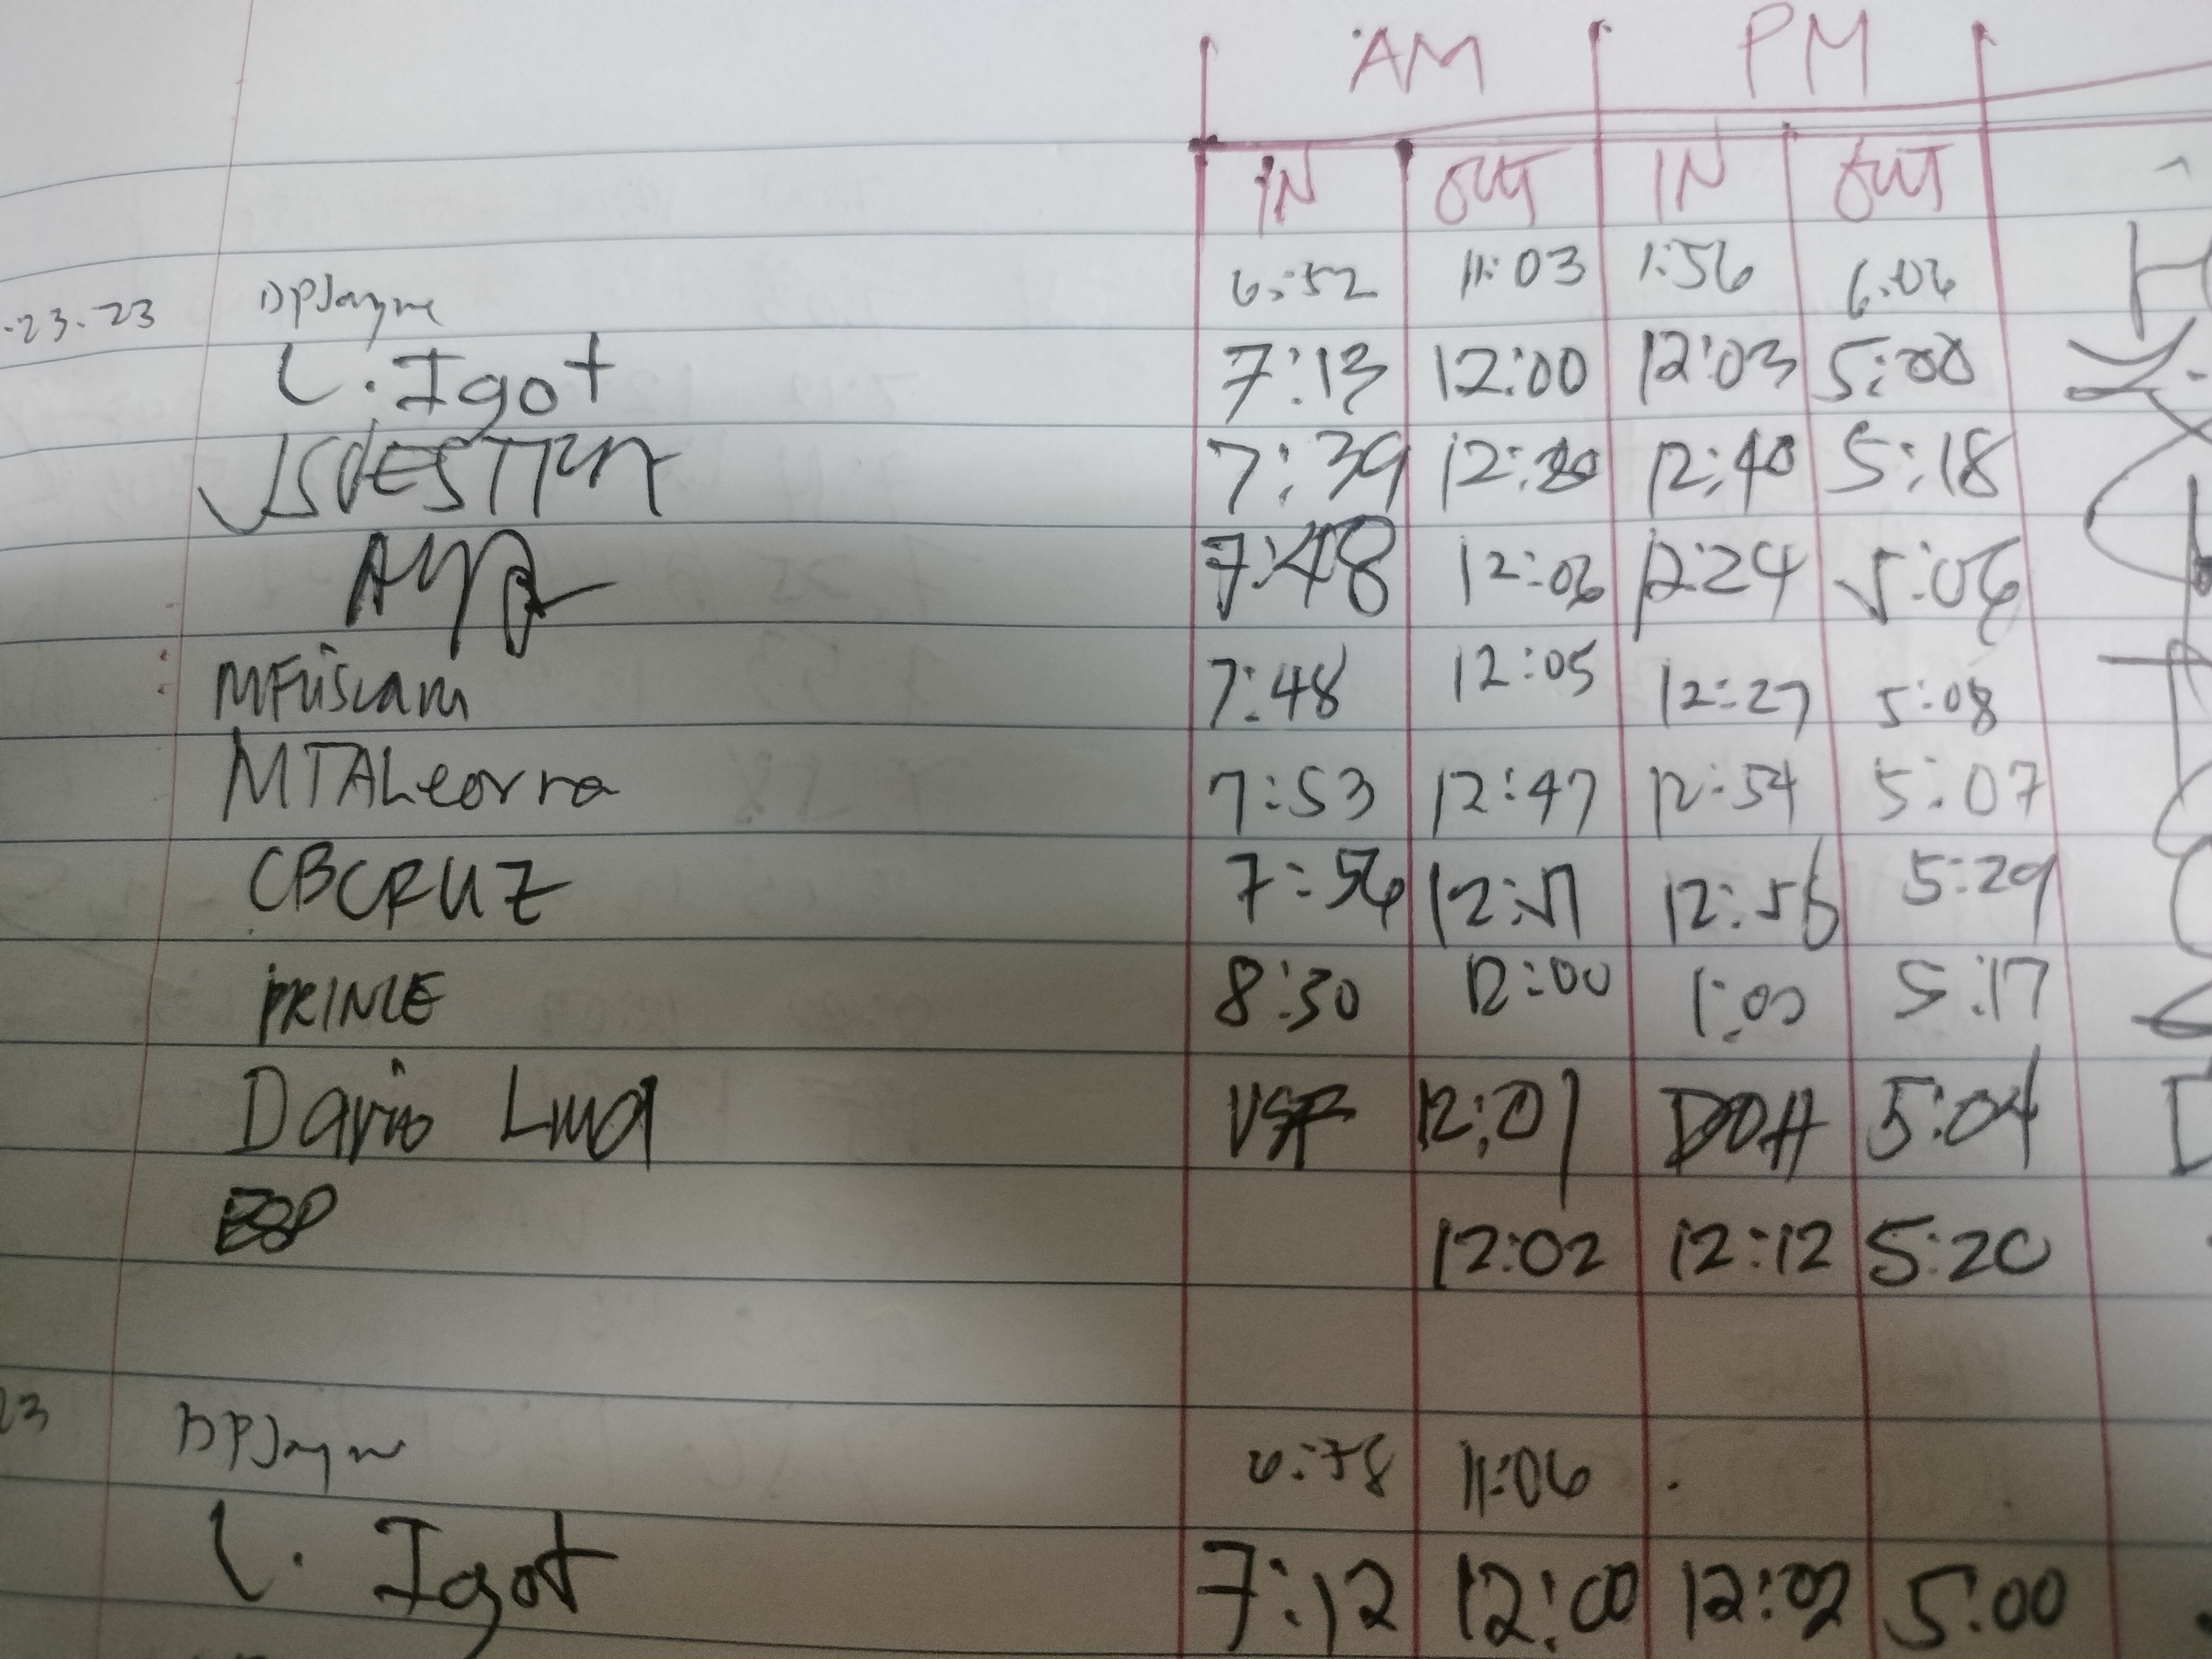 AM PM
IN OUT IN OUT
-23-23 DPJayme 6:52 11:03 1:56 6:06
L. Igot 7:13 12:00 12:03 5:00
7:39 12:20 12:40 5:18
7:48 12:06 12:24 5:06
7:48 12:05 12:27 5:08
MTALeorna 7:53 12:47 12:54 5:07
CBCRUZ 7:56 12:51 12:56 5:29
PRINCE 8:30 12:00 1:00 5:17
Dario 12:01 DOH 5:04
12:02 12:12 5:20
23 DPJayme 11:06
L. Igot 7:12 12:00 12:02 5:00